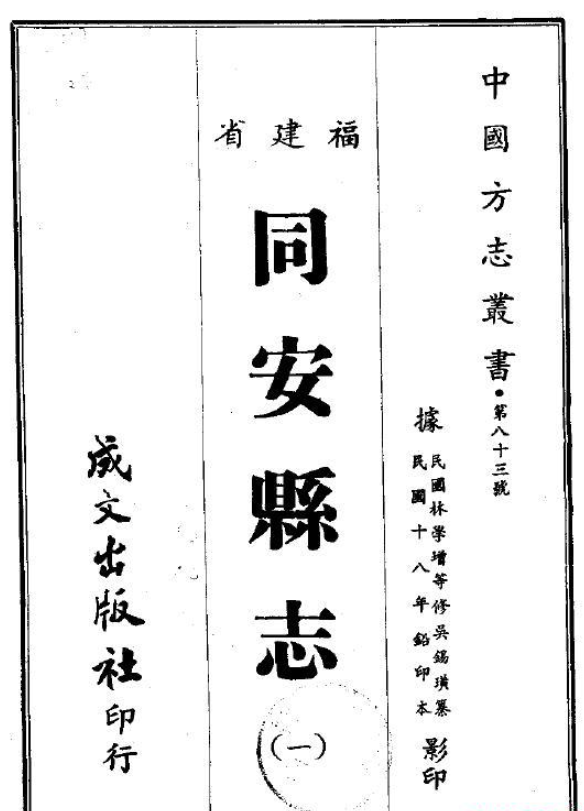 中國方志叢書・第八十三號
據
民國林學增等修吳錫璜纂
民國十八年鉛印本
影印
福建省
同安縣志
(一)
成文出版社印行